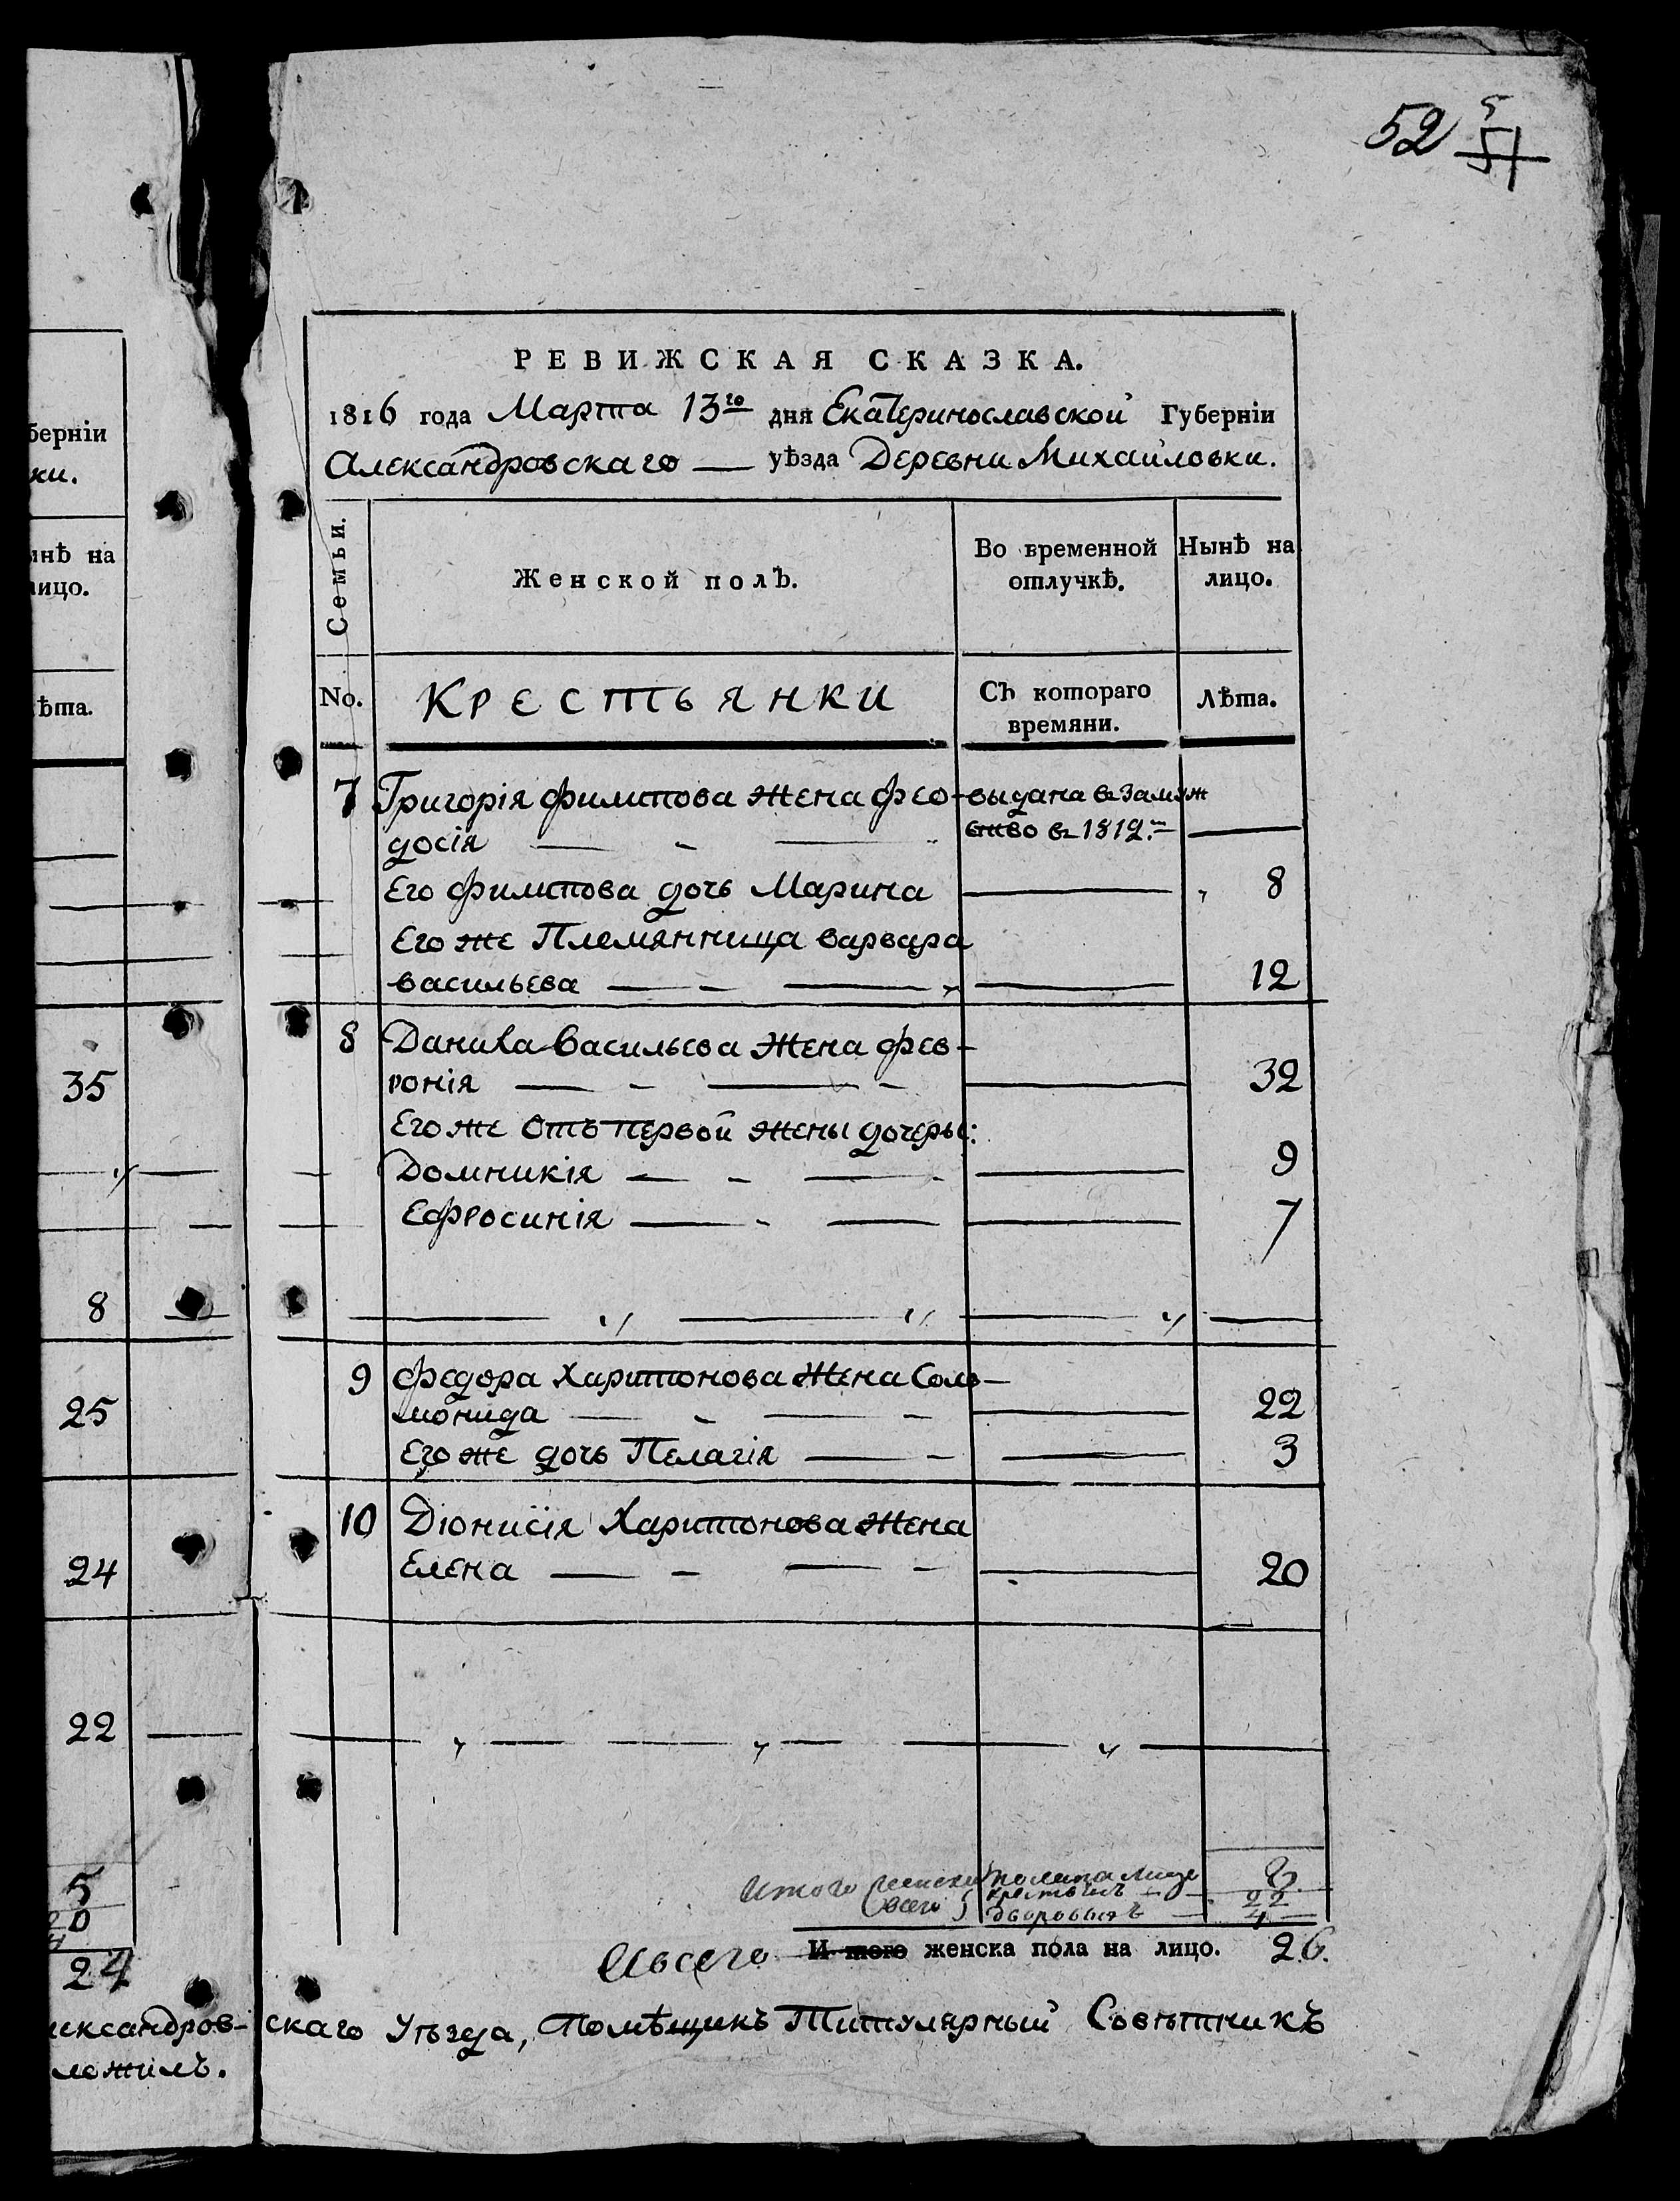 52 51
РЕВИЖСКАЯ СКАЗКА.
1816 года Марта 13го дня Екатеринославской Губернїи
Александровскаго — уѣзда Деревни Михайловки.
Семьи.
Женской полъ.
Во временной отлучкѣ.
Нынѣ на лицо.
No.
Крестьянки
Съ котораго времяни.
Лѣта.
7 Григорія Филипова Жена Фео- выдана в Замуж
досія — - — ство в 1812м —
Его Филипова дочь Марина — 8
Его же Племянница Варвара
Васильева — - — — 12
8 Данила Васильева Жена Фев-
ронія — - — - — 32
Его же Отъ первой жены дочеры:
Домникія — - — — 9
Ефросинія — - — — 7
9 Федора Харитонова Жена Соло-
монида — - — - — 22
Его же дочь Пелагія — - — 3
10 Діонисія Харитонова Жена
Елена — - — - — 20
Итого женска пола на лицо 8
всего крестьянъ — 22
дворовыхъ — 4
И всего И того женска пола на лицо. 26.
скаго Уѣзда, Помѣщикъ Титулярный Совѣтникъ
берніи
ки.
ынѣ на
лицо.
ѣта.
35
8
25
24
22
5
20
4
24
лександров-
ложилъ.